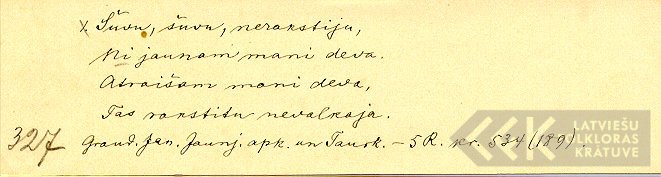 Šuvu, šuvu, nerakstiju,
Ni jaunam mani deva.
Atraišam mani deva,
Tas rakstitu nevalkaja.
327 Graud. Jan. Jaunj. apk. un Taurk. – 5 R. nr. 534 (189)
LATVIEŠU
FOLKLORAS
KRĀTUVE